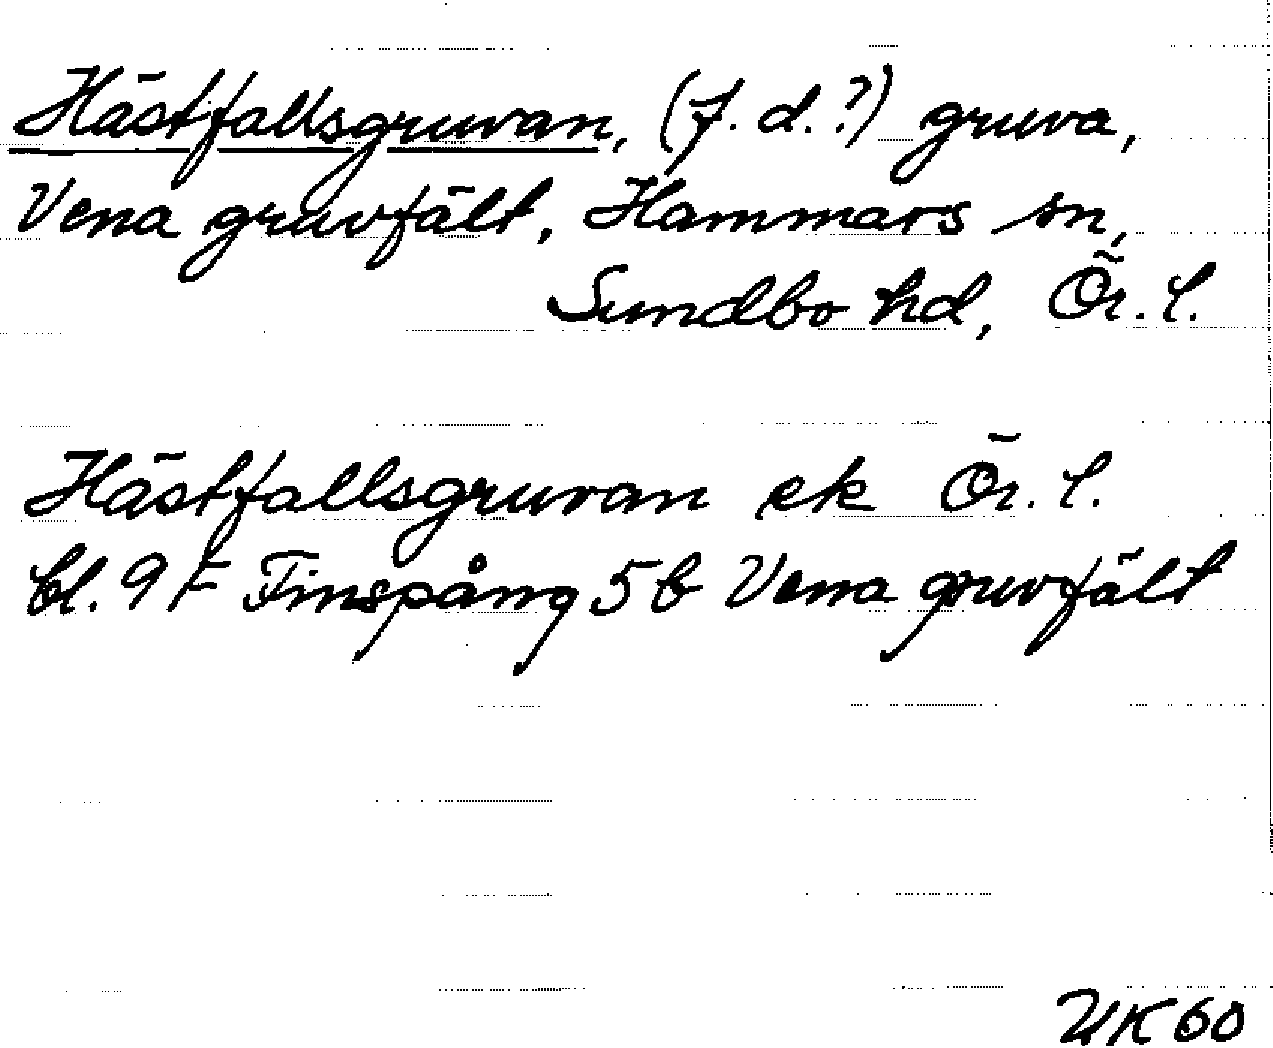 Hästfallsgruvan, (f. d.?) gruva,
Vena gruvfält, Hammars sn,
Sundbo hd, Ör. l.
Hästfallsgruvan ek Ör. l.
bl. 9 F Finspång 5 b Vena gruvfält
UK 60